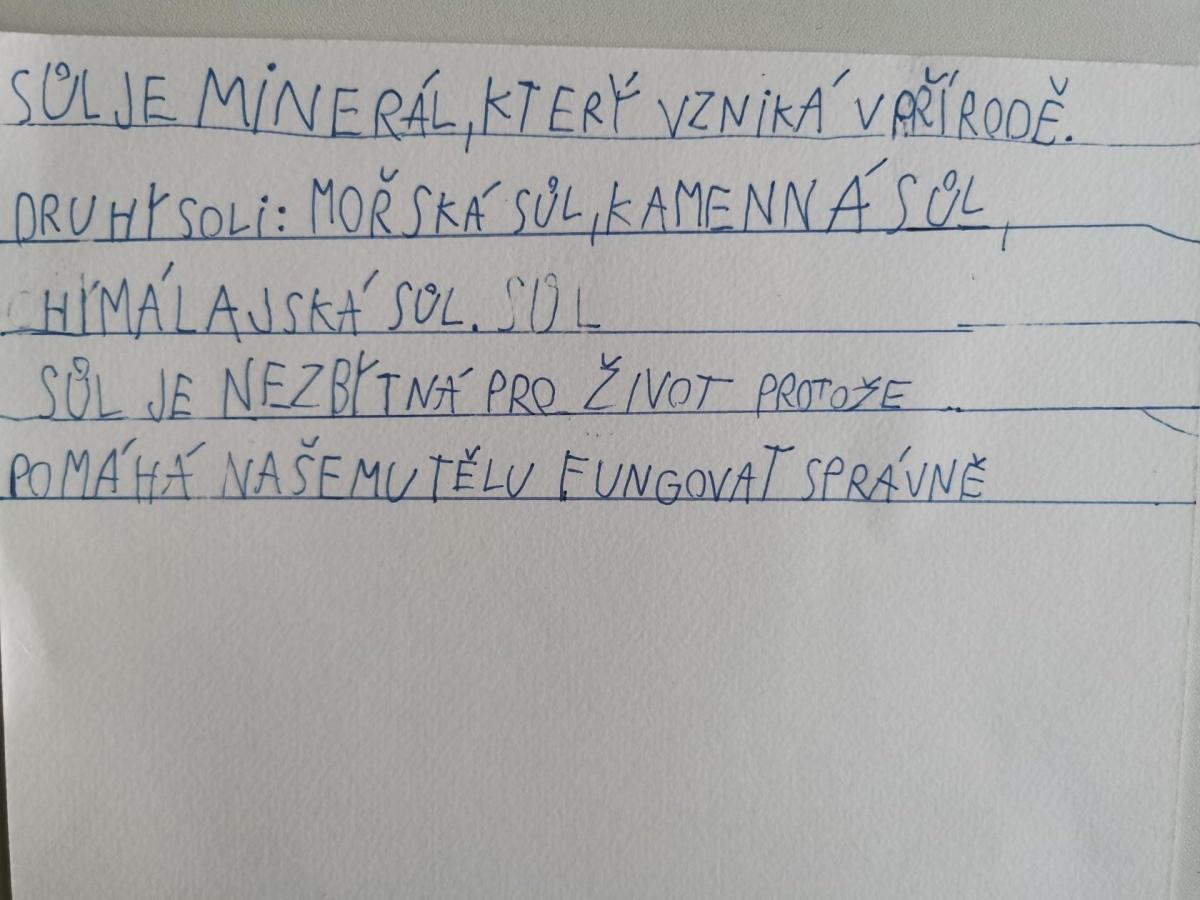 SŮL JE MINERÁL, KTERÝ VZNIKÁ V PŘÍRODĚ.
DRUHY SOLI: MOŘSKÁ SŮL, KAMENNÁ SŮL,
HIMÁLAJSKÁ SŮL. SŮL
SŮL JE NEZBYTNÁ PRO ŽIVOT PROTOŽE
POMÁHÁ NAŠEMU TĚLU FUNGOVAT SPRÁVNĚ